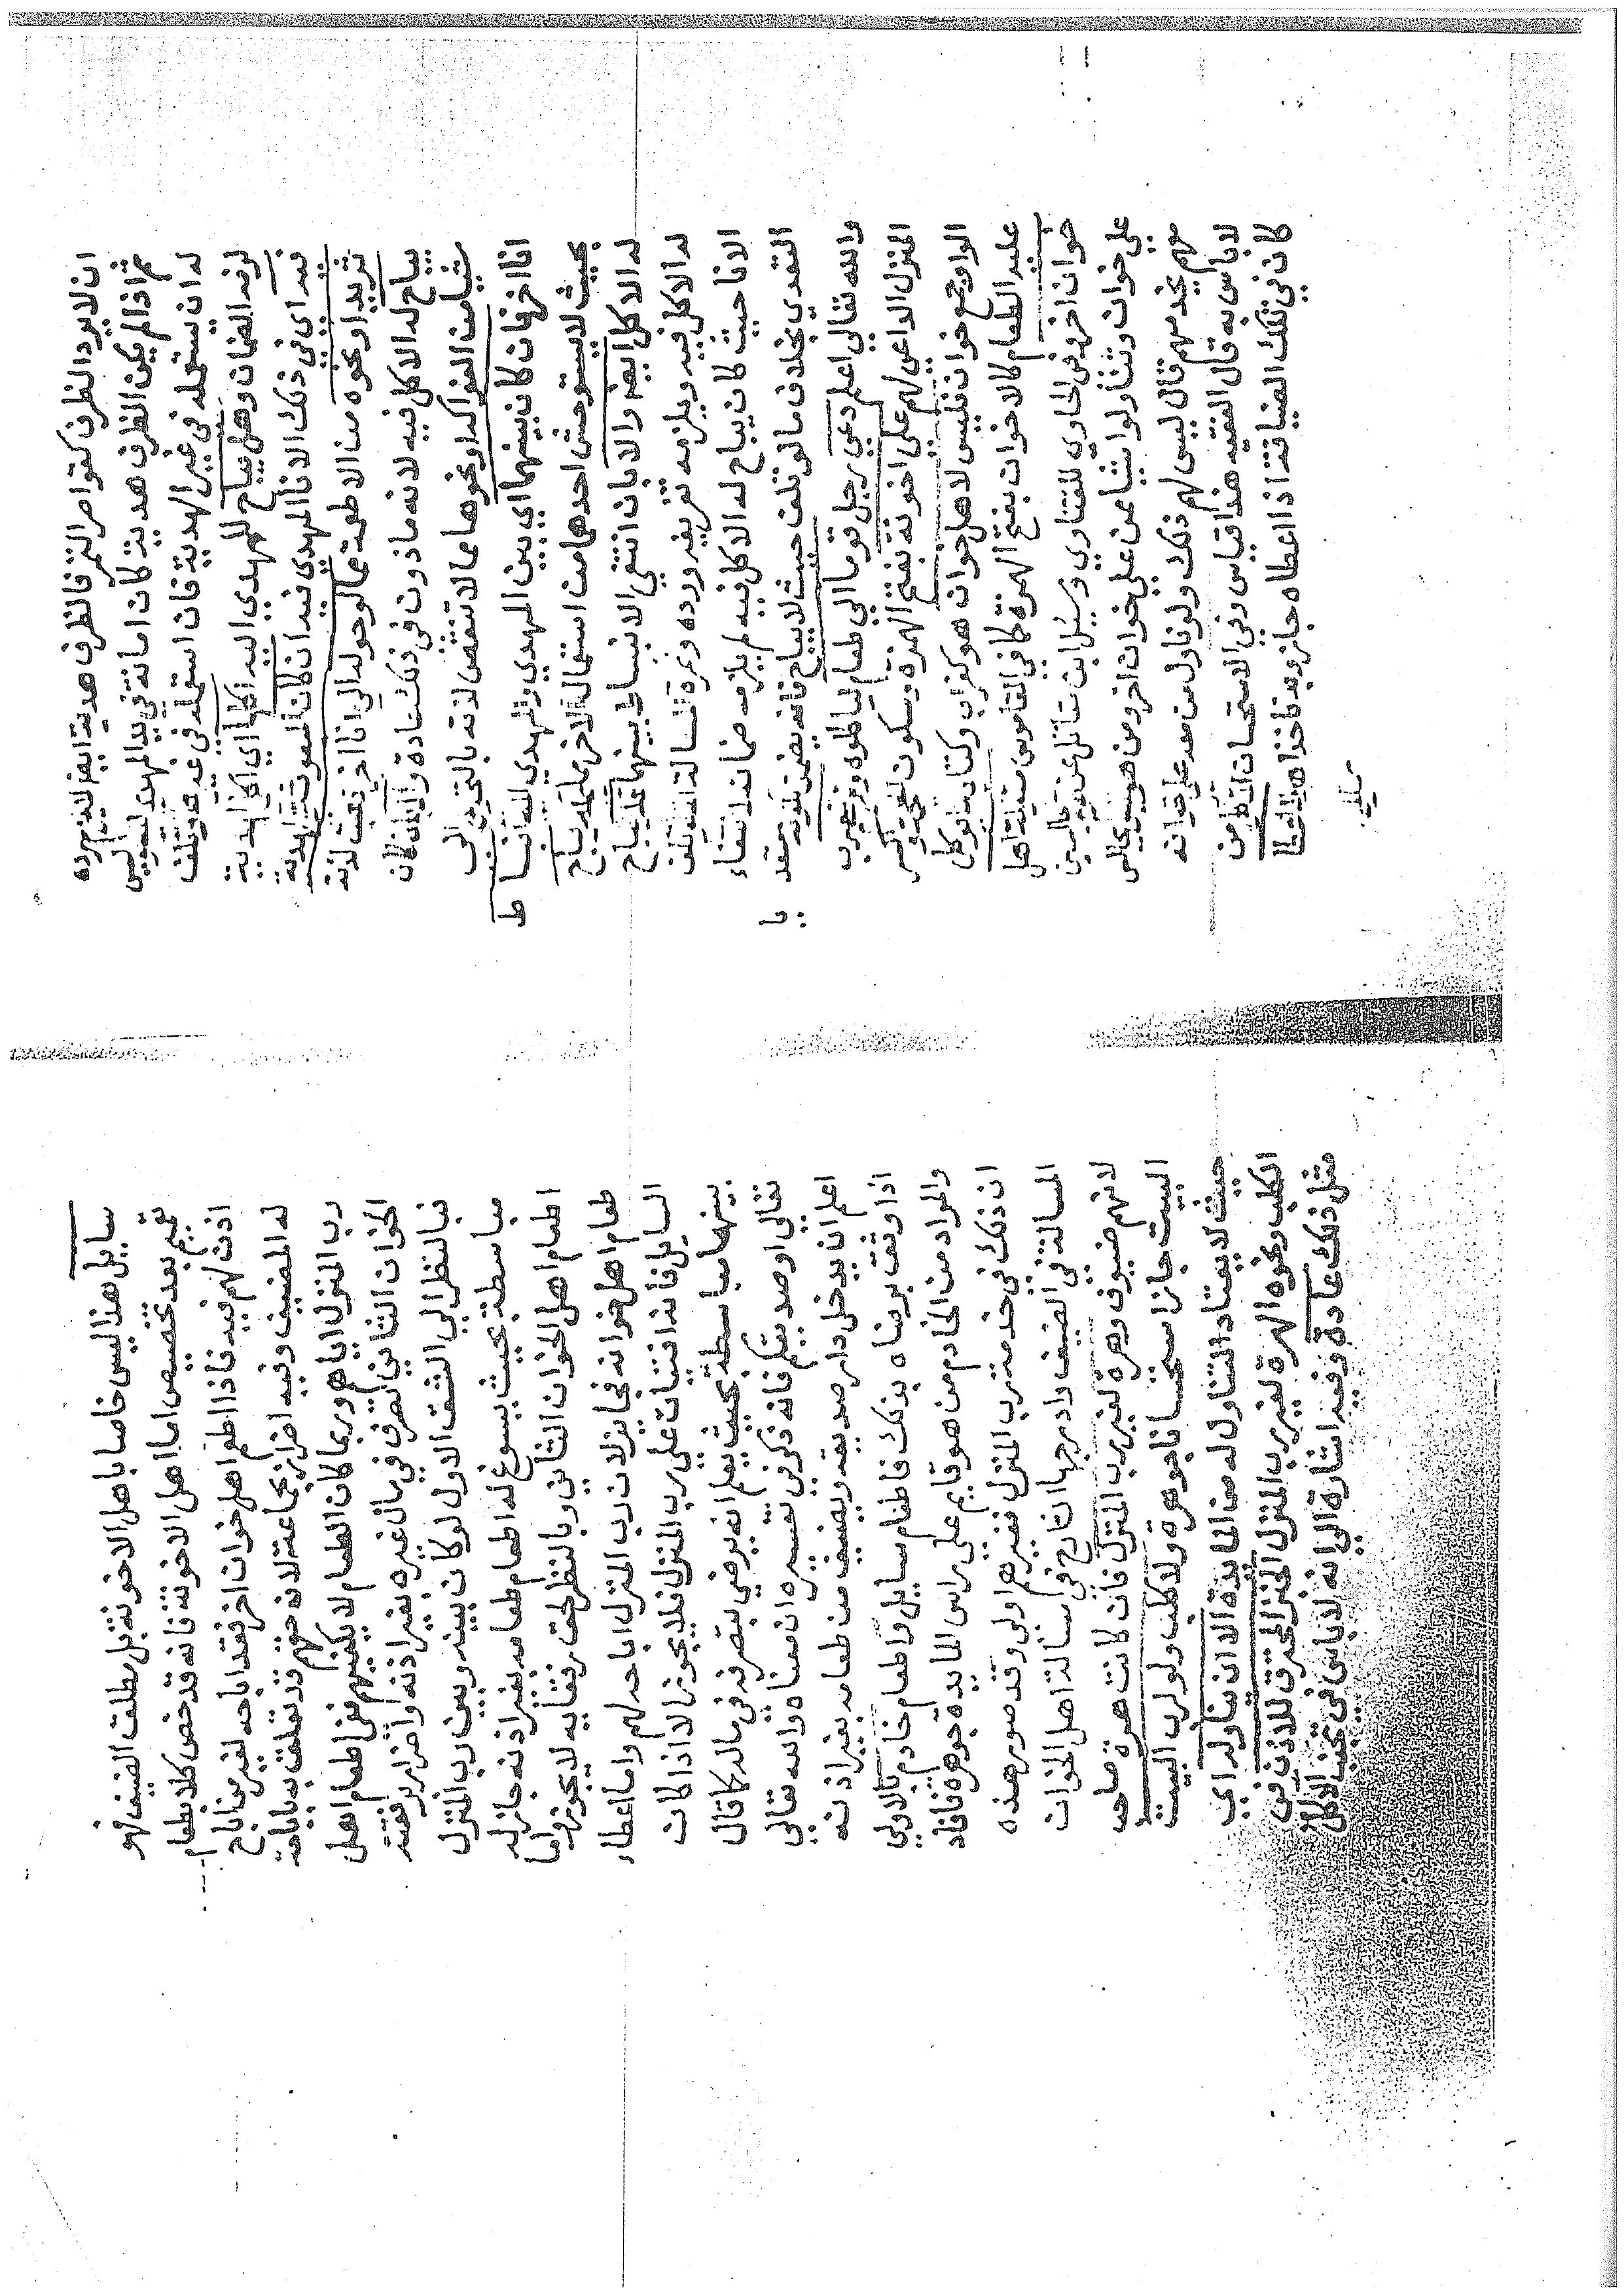 ان لا يرد الظرف كقواصر التمر فالظرف هدية ايضا لا يلزمه رده
ثم اذا لم يكن الظرف هدية كان امانة في يد المهدي اليه ليس
له ان يستعمله في غير الهدية فان استعمله في غيره وتلف
لزمه الضمان وهل يباح للمهدي اليه اكلها اي اكل الهدية
فيه اي في ذلك الاناء المهدي فيه ان كان المبعوث للهدية
ثريدا او نحوه من الاطعمة مما لو حوله الى اناء اخر ذهبت لذته
يباح له الاكل فيه لانه ماذون في ذلك عادة وان كان
شيا من الفواكه او نحوها مما لا تنقص لذته بالتحويل الى
اناء اخر فان كان بينهما اي بين المهدي والمهدي اليه انبساط
بحيث لا يستوحش احدهما من استعمال الاخر ملكه يباح
له الاكل ايضا والا بان انتفى الانبساط بينهما فلا يباح
له الاكل فيه ويلزمه تفريغه ورده وثمرة المسالة انه لو تلف
الاناء حيث كان يباح له الاكل فيه لم يلزمه ضمانه لانتفاء
التعدي بخلاف ما لو تلف حيث لا يباح فانه يضمنه لكونه متعد
والله تعالى اعلم دعي رجل قوما الي طعام لياكلوه وفرقهم رب
المنزل الداعي لهم على اخونة بفتح الهمزة وسكون الخاء وكسر
الواو جمع خوان فليس لاهل خوان هو كغراب وكتاب ما يوكل
عليه الطعام كالاخوان بفتح الهمزة كما في القاموس مناولة اهل
خوان اخر وفي الحاوي للفتاوي وسيل ابن مقاتل عن قوم جالسين
علي خوان وتناولوا شيا من علي خوان اخر ومن هو ليس بجالس
معهم يخدمهم قال ليس لهم ذلك ولو ناول من معه على خوانه
لا باس به قال الفقيه هذا قياس وفي الاستحسان ان كل من
كان في تلك الضيافة اذا اعطاه جاز وبه ناخذ اهـ ولا اعطاء
سايل
سايل هذا ليس خاصا باهل الاخونة بل مطلق الضيف فهو
تعميم بعد تخصيص اما اهل الاخونة فانه قد خص كلا بطعام
اذن لهم فيه فاذا اطعم اهل خوان اخر فقد اباحه لغير من اباح
له المضيف وفيه اضرار بجماعته لانه حقهم قد تعلق به باباحة
رب المنزل اياه وربما كان الطعام لا يكفيهم ففي اطعام اهل
الخوان الثاني تصرف في مال غيره بغير اذنه واضرار برفقته
فبالنظر الي الشق الاول لو كان بينه وبين رب المنزل
مباسطة بحيث يسوغ له اطعام طعامه بغير اذنه جاز له
اطعام اهل الخوان الثاني وبالنظر لحق رفقايه لا يجوز واما
طعام اهل خوانه فجايز لان رب المنزل اباحه لهم واما اعطاء
السايل فانه افتيات على رب المنزل فلا يجوز الا اذا كانت
بينهما مباسطة بحيث يعلم انه يرضي بتصرفه في ماله كما قال
تعالى او صديقكم فانه ذكر في تفسيره ان معناه والله تعالى
اعلم ان يدخل دار صديقه ويضيف من طعامه بغير اذنه
اذا وثق برضاه بذلك فاطعام سايل واطعام خادم بالاولي
والمراد من الخادم من هو قايم على راس المايدة تجوهره فافاد
ان ذلك في خدمة رب المنزل فغيرهم اولى وقد صور هذه
المسالة في الضيف وادرجها الشارح في مسالة اهل الخوان
لانهم ضيوف وهرة لغير رب المنزل فان كانت هرة صاحب
البيت جاز استحسانا جوهرة ولا كلب ولو لرب البيت
حيث لا يعتاد التناول له من المايدة الا ان يناوله اي
الكلب ونحوه الهرة لغير رب المنزل الخبز المحترق للاذن في
مثل ذلك عادة وفيه اشارة الي انه لا باس في تجنب الاكل